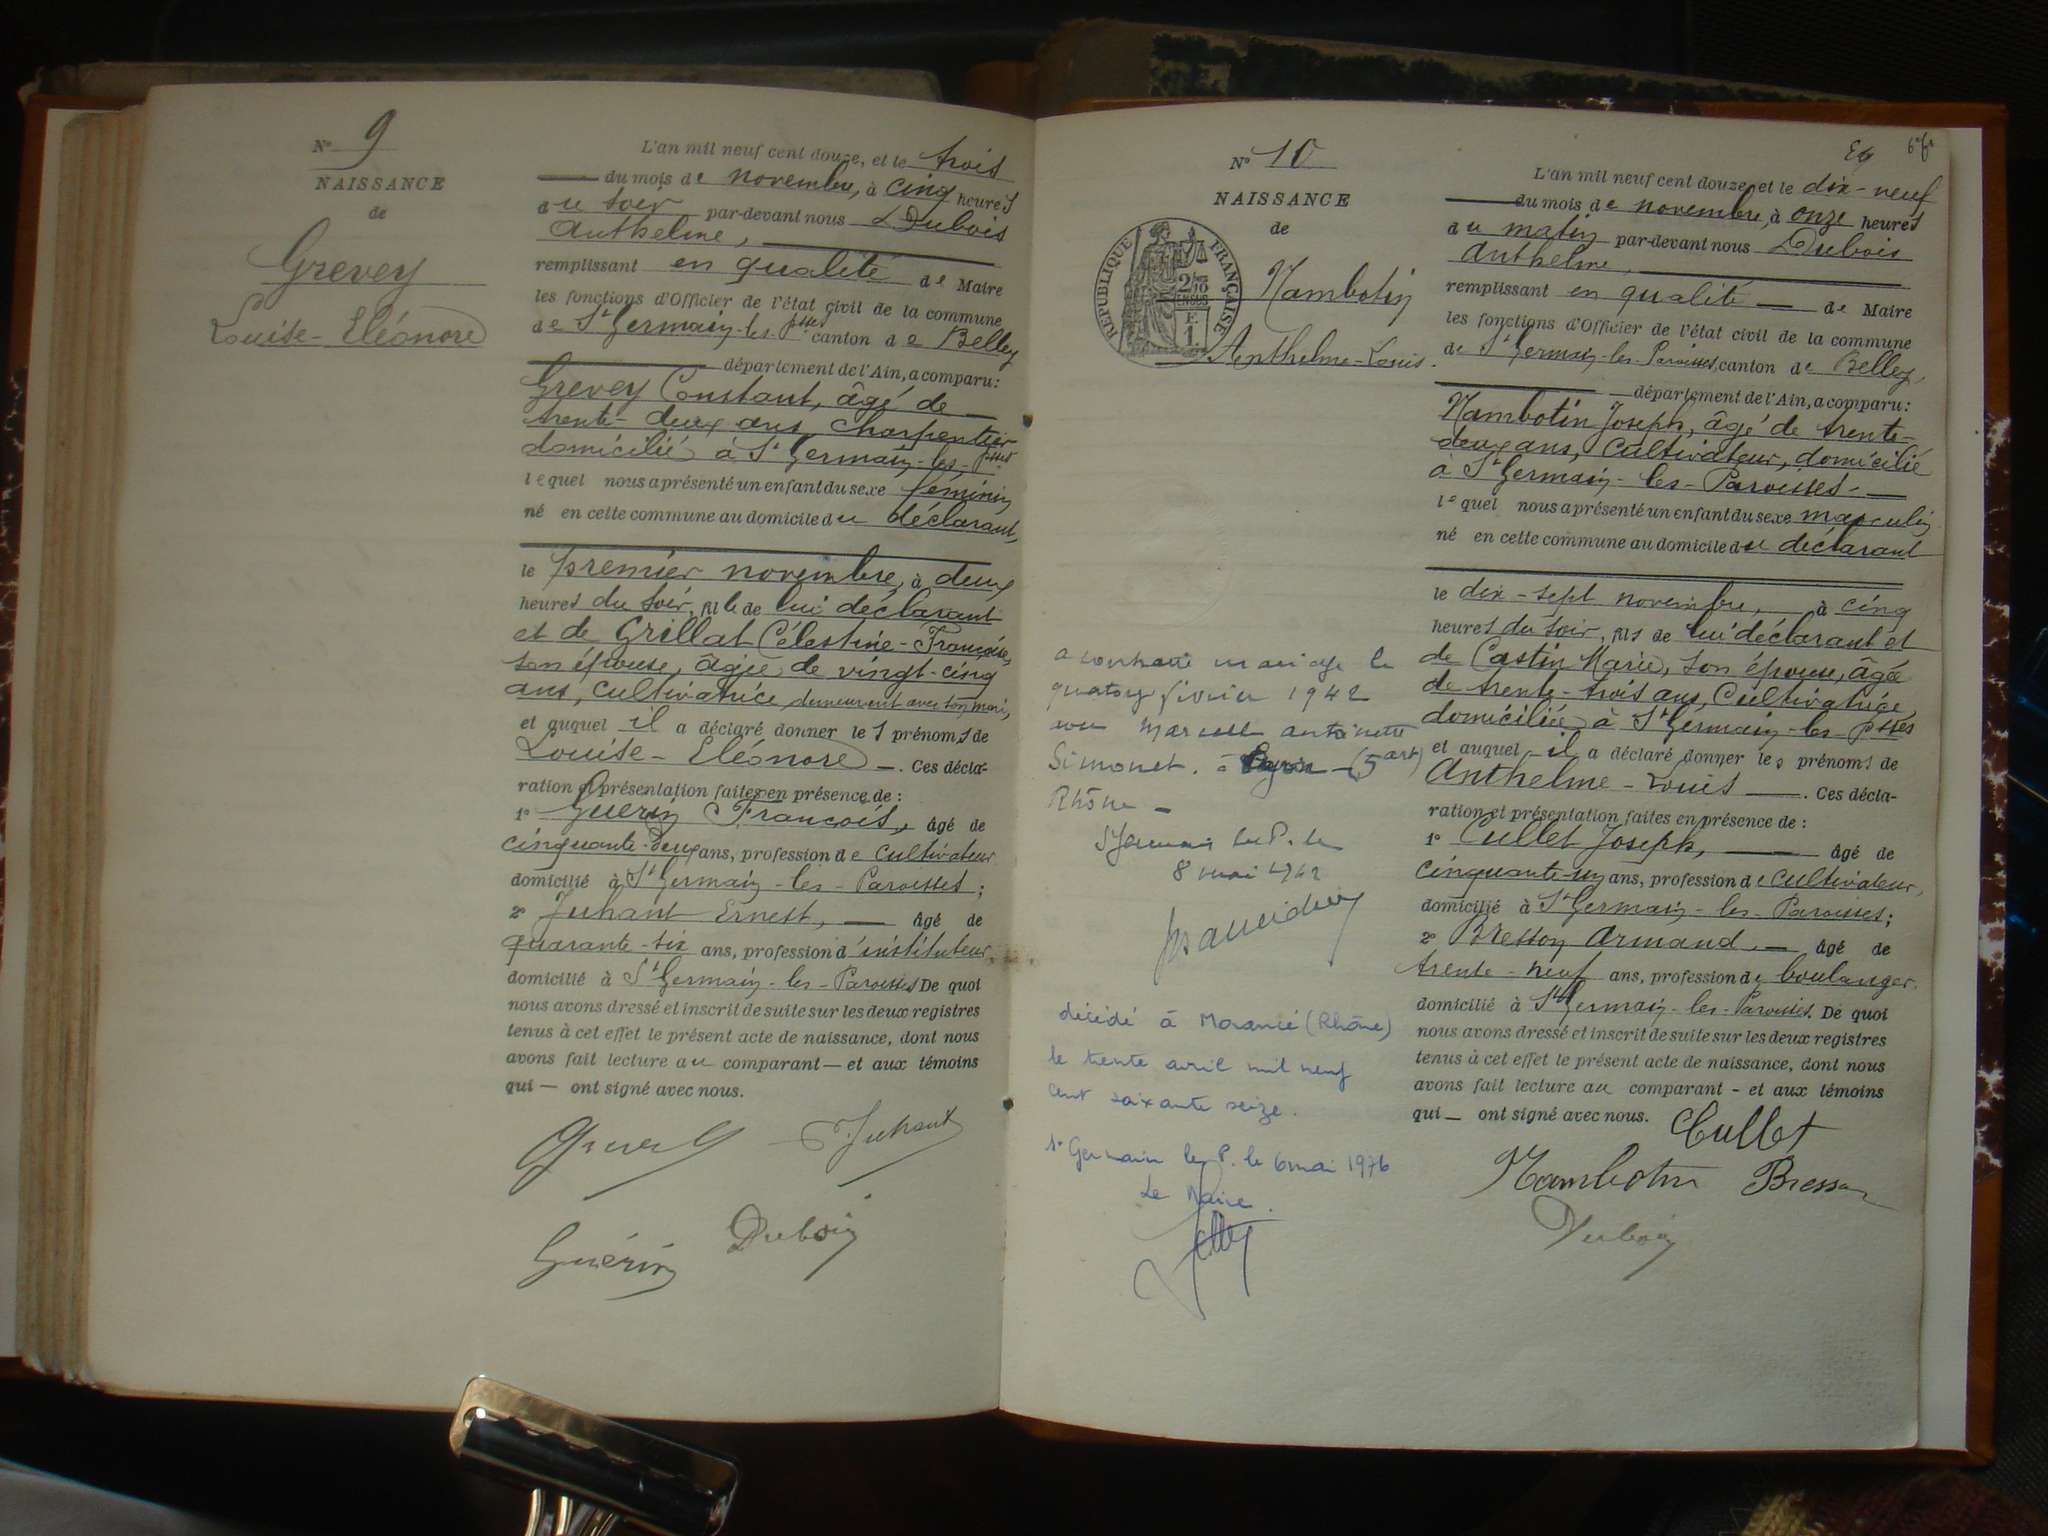 N° 9
NAISSANCE
de
Grevey
Louise-Eléonore
L'an mil neuf cent douze, et le trois
du mois de novembre, à cinq heures
du soir par-devant nous Dubois
Anthelme,
remplissant en qualité de Maire
les fonctions d'Officier de l'état civil de la commune
de St Germain-les-Psses canton de Belley
département de l'Ain, a comparu :
Grevey Constant, âgé de
trente-deux ans, charpentier
domicilié à St Germain-les-Psses
lequel nous a présenté un enfant du sexe féminin
né en cette commune au domicile du déclarant,
le premier novembre, à deux
heures du soir, fille de lui déclarant
et de Grillat Célestine-Françoise,
son épouse, âgée de vingt-cinq
ans, cultivatrice, demeurant avec son mari,
et auquel il a déclaré donner les prénoms de
Louise-Eléonore. Ces décla-
ration et présentation faites en présence de :
1° Guérin François, âgé de
cinquante-deux ans, profession de cultivateur
domicilié à St Germain-les-Paroisses ;
2° Juhant Ernest, âgé de
quarante-six ans, profession d'instituteur,
domicilié à St Germain-les-Paroisses De quoi
nous avons dressé et inscrit de suite sur les deux registres
tenus à cet effet le présent acte de naissance, dont nous
avons fait lecture au comparant — et aux témoins
qui — ont signé avec nous.
Juhant
Guérin Dubois
N° 10
NAISSANCE
de
RÉPUBLIQUE FRANÇAISE
Nambotin
Anthelme-Louis.
a contracté mariage le
quatorze février 1942
avec Marcelle Antoinette
Simonet. à Lyon (5 art)
Rhône -
St Germain les P. le
8 mai 1942
décédé à Morancé (Rhône)
le trente avril mil neuf
cent soixante seize.
St Germain les P. le 6 mai 1976
Le Maire.
L'an mil neuf cent douze, et le dix-neuf
du mois de novembre, à onze heures
du matin par-devant nous Dubois
Anthelme,
remplissant en qualité — de Maire
les fonctions d'Officier de l'état civil de la commune
de St Germain-les-Paroisses, canton de Belley,
département de l'Ain, a comparu :
Nambotin Joseph, âgé de trente-
deux ans, cultivateur, domicilié
à St Germain-les-Paroisses-
lequel nous a présenté un enfant du sexe masculin
né en cette commune au domicile du déclarant
le dix-sept novembre, à cinq
heures du soir, fils de lui déclarant et
de Castin Marie, son épouse, âgée
de trente-trois ans, Cultivatrice,
domiciliée à St Germain-les-Psses
et auquel il a déclaré donner les prénoms de
Anthelme-Louis. Ces décla-
ration et présentation faites en présence de :
1° Cullet Joseph, âgé de
cinquante-un ans, profession de cultivateur,
domicilié à St Germain-les-Paroisses ;
2° Bresson Armand, — âgé de
trente-neuf ans, profession de boulanger,
domicilié à St Germain-les-Paroisses. De quoi
nous avons dressé et inscrit de suite sur les deux registres
tenus à cet effet le présent acte de naissance, dont nous
avons fait lecture au comparant - et aux témoins
qui — ont signé avec nous.
Cullet
Nambotin Bresson
Dubois